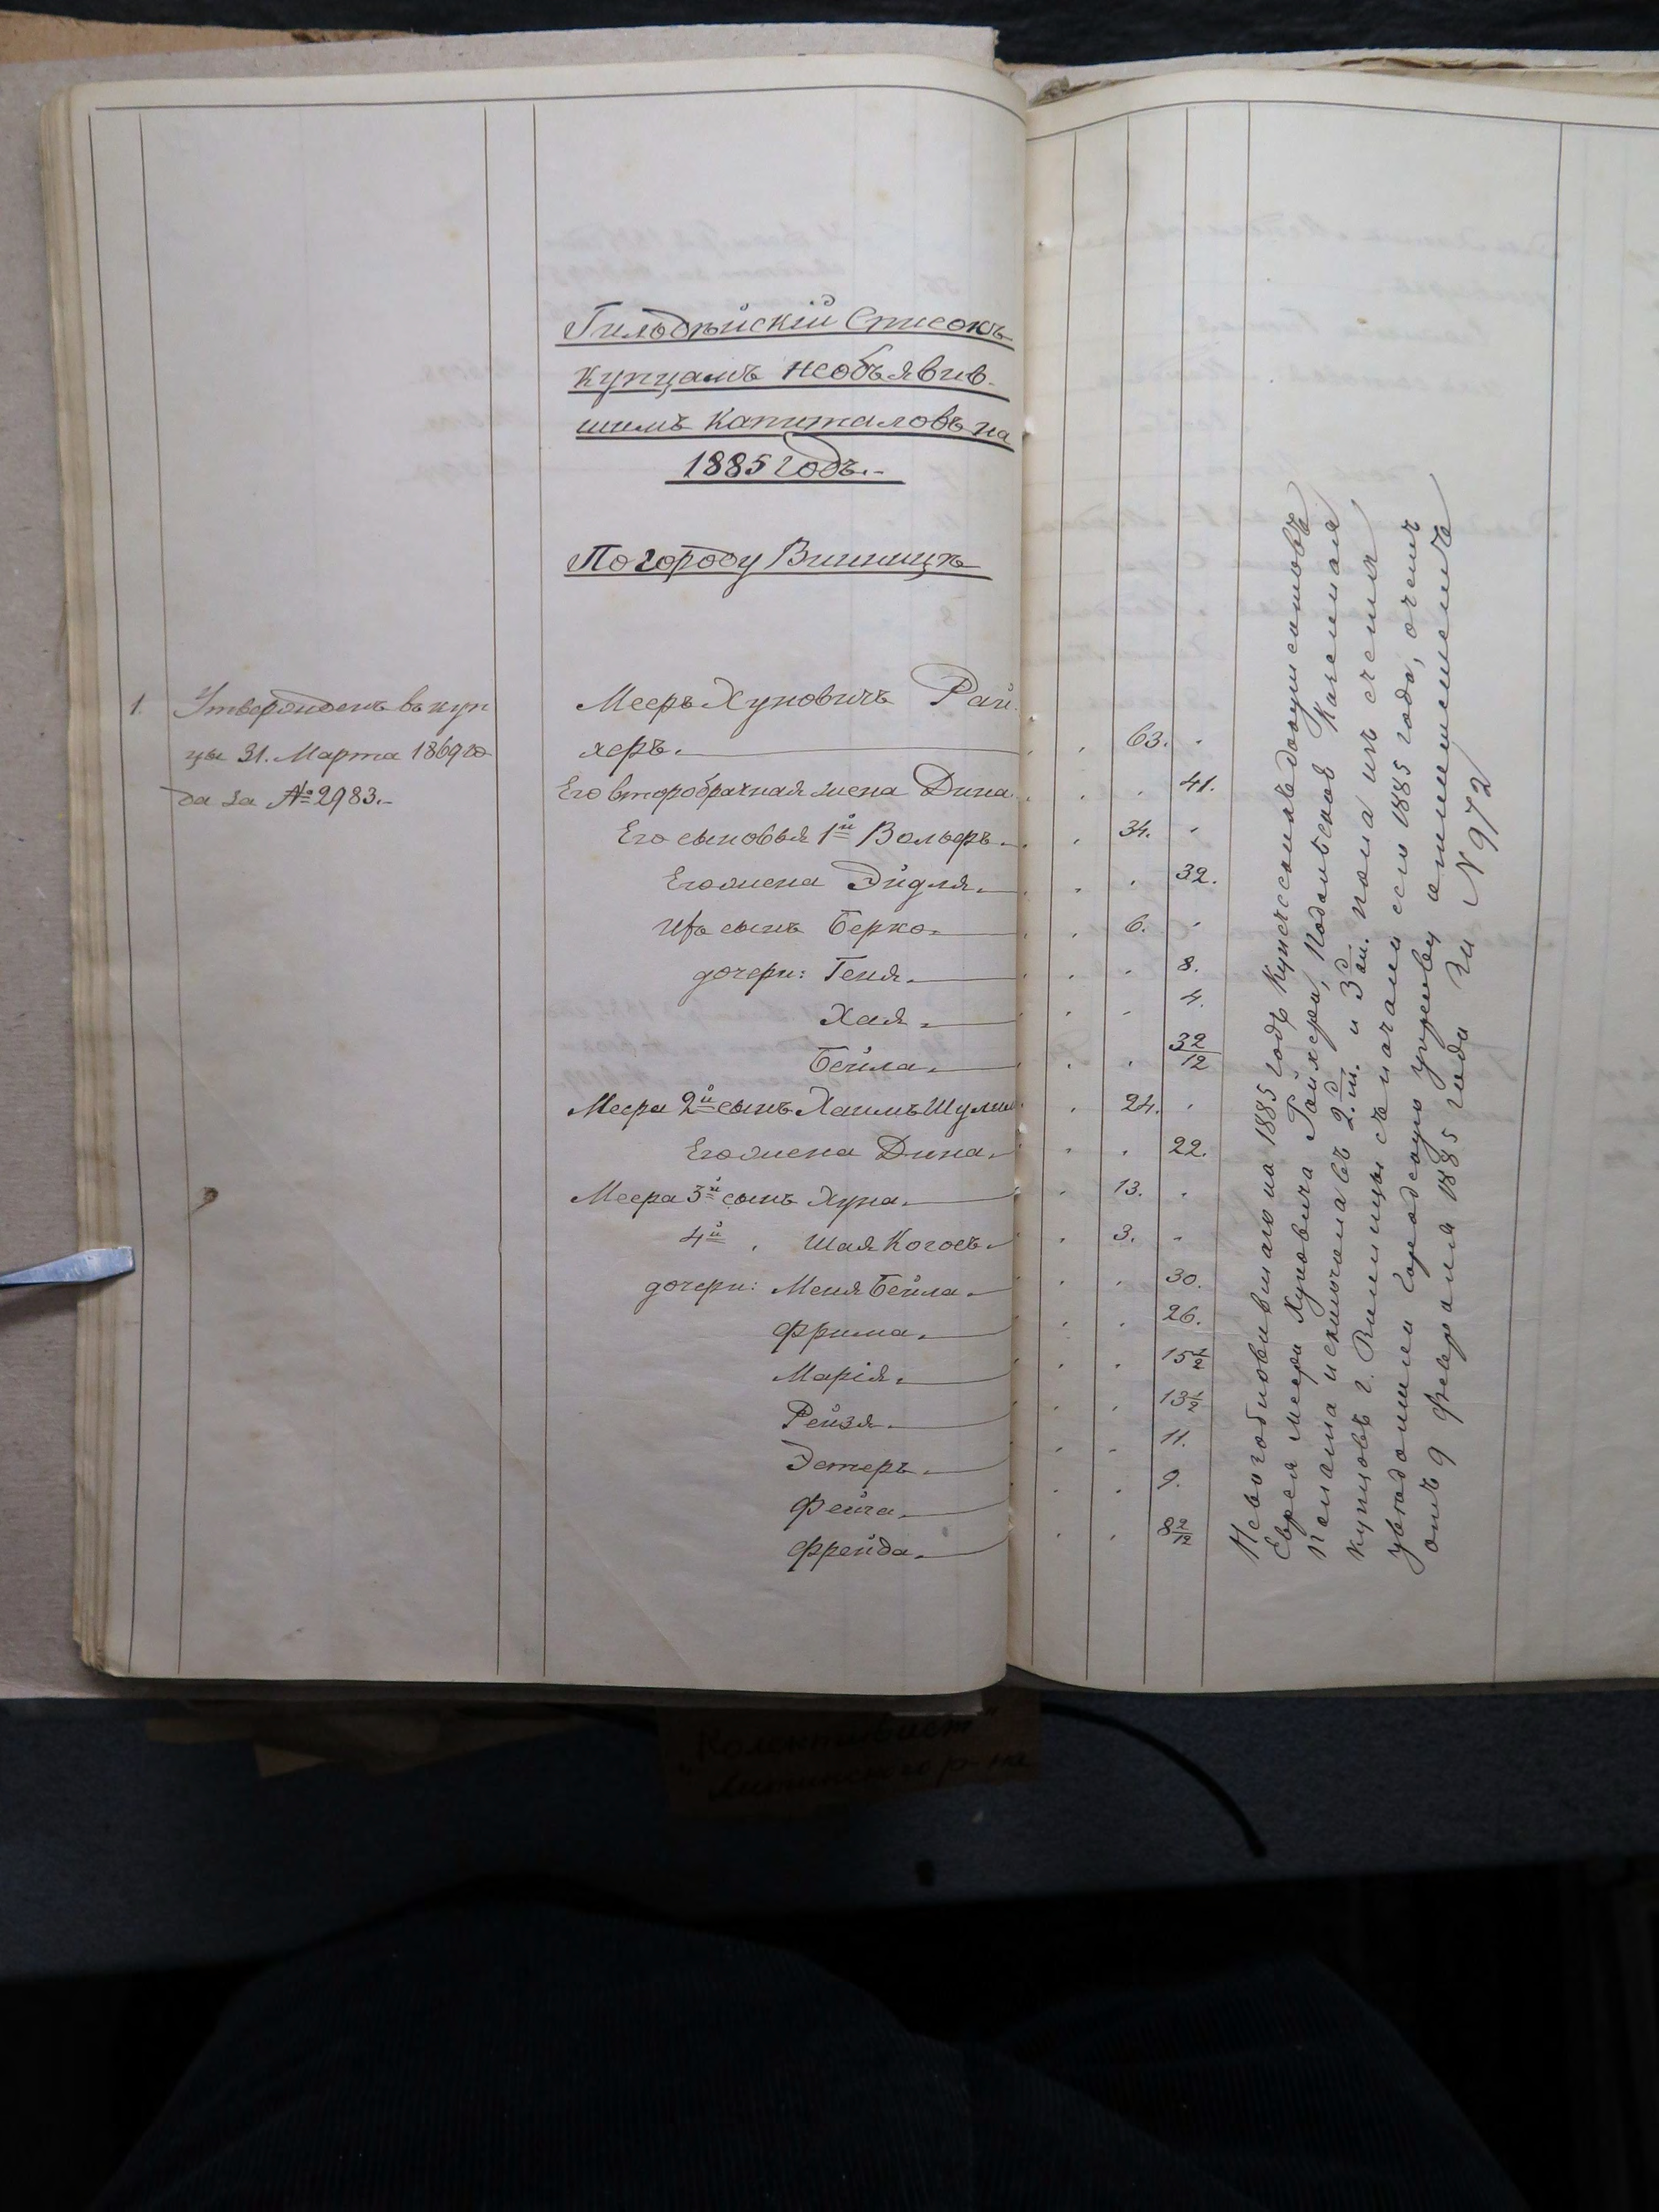 Гильдейскій Списокъ
купцамъ необъявив-
шимъ капиталовъ на
1885 годъ.-
По городу Винницѣ
1. Утвержденъ въ куп
цы 31. Марта 1869 го
да за № 2983.-
Мееръ Хуновичъ Рай
херъ. 63.
Его второбрачная жена Дина 41.
Его сыновья 1й Вольфъ. 34.
Его жена Эйдля. 32.
Ихъ сынъ Берко. 6.
дочери: Геня. 8.
Хая. 4.
Бейла. 3 2/12
Меера 2й сынъ Хаимъ Шулим 24.
Его жена Дина. 22.
Меера 3й сынъ Хуна. 13.
4й Шая Когосъ. 3.
дочери: Меня Бейла. 30.
Фрима. 26.
Марія. 15 1/2
Рейзя. 13 1/2
Эстеръ. 11.
Фейга. 9.
Фрейда. 8 2/12
Невозобновившаго на 1885 годъ купеческихъ документовъ
Еврея Меера Хуновича Райхера, Подольская Казенная
Палата исключила въ 2.д. ш. и 3 д. ш. изъ счета
купцовъ г. Винницы съ начала сего 1885 года, о чемъ
увѣдомила Городскую управу отношеніемъ
отъ 9 февраля 1885 года за N 972
"Колективист"
Литинського р-на